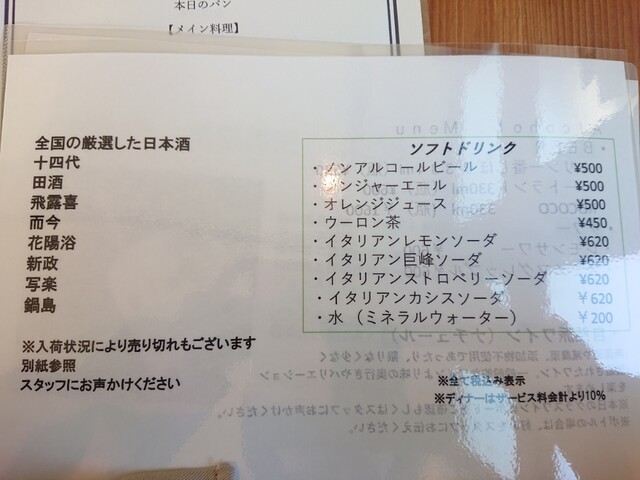 本日のパン
【メイン料理】
全国の厳選した日本酒
十四代
田酒
飛露喜
而今
花陽浴
新政
写楽
鍋島
※入荷状況により売り切れもございます
別紙参照
スタッフにお声かけください
ソフトドリンク
・ノンアルコールビール ¥500
・ジンジャーエール ¥500
・オレンジジュース ¥500
・ウーロン茶 ¥450
・イタリアンレモンソーダ ¥620
・イタリアン巨峰ソーダ ¥620
・イタリアンストロベリーソーダ ¥620
・イタリアンカシスソーダ ¥620
・水（ミネラルウォーター） ¥200
※全て税込み表示
※ディナーはサービス料会計より10%